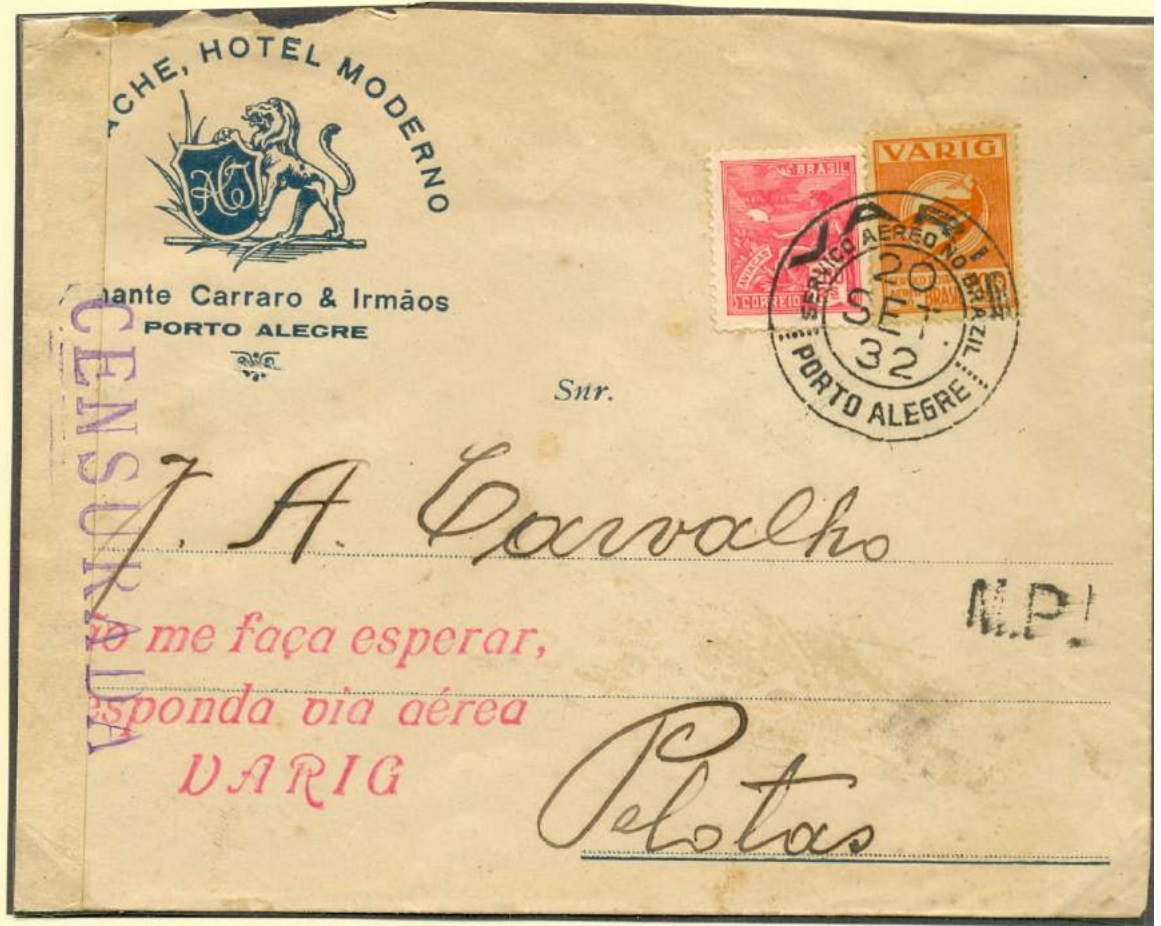 ACHE, HOTEL MODERNO
ACJ
mante Carraro & Irmãos
PORTO ALEGRE
BRASIL
AVIAÇÃO
CORREIO
VARIG
BRASIL
VARIG
SERVIÇO AEREO NO BRAZIL
20
SET
32
PORTO ALEGRE
Snr.
J. A. Carvalho
CENSURADA
ão me faça esperar,
esponda via aérea
VARIG
M.P.
Pelotas